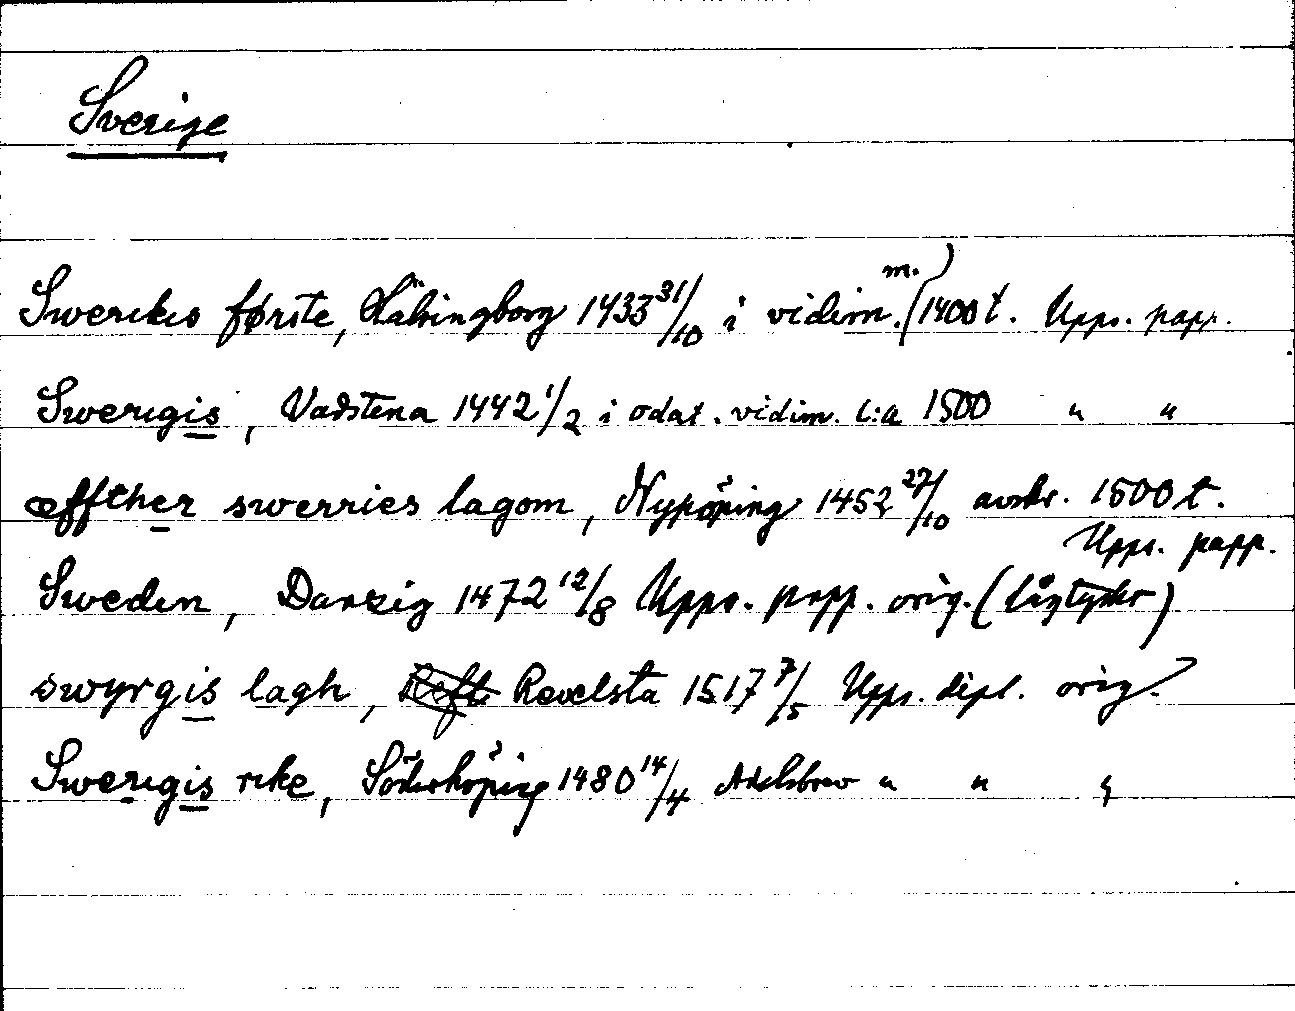 Sverige
Swerikis første, Hälsingborg 1433 31/10 i vidim. (m. 1400 t.) Upps. papp.
Swerigis, Vadstena 1442 1/2 i odat. vidim. c:a 1500 " "
æffther swerries lagom, Nyköping 1452 27/10 avskr. 1500 t.
Upps. papp.
Sweden, Danzig 1472 12/8 Upps. papp. orig. (lågtyskt)
swyrgis lagh, Revelsta 1517 7/5 Upps. dipl. orig.
Swerigis rike, Söderköping 1480 14/4 " " "